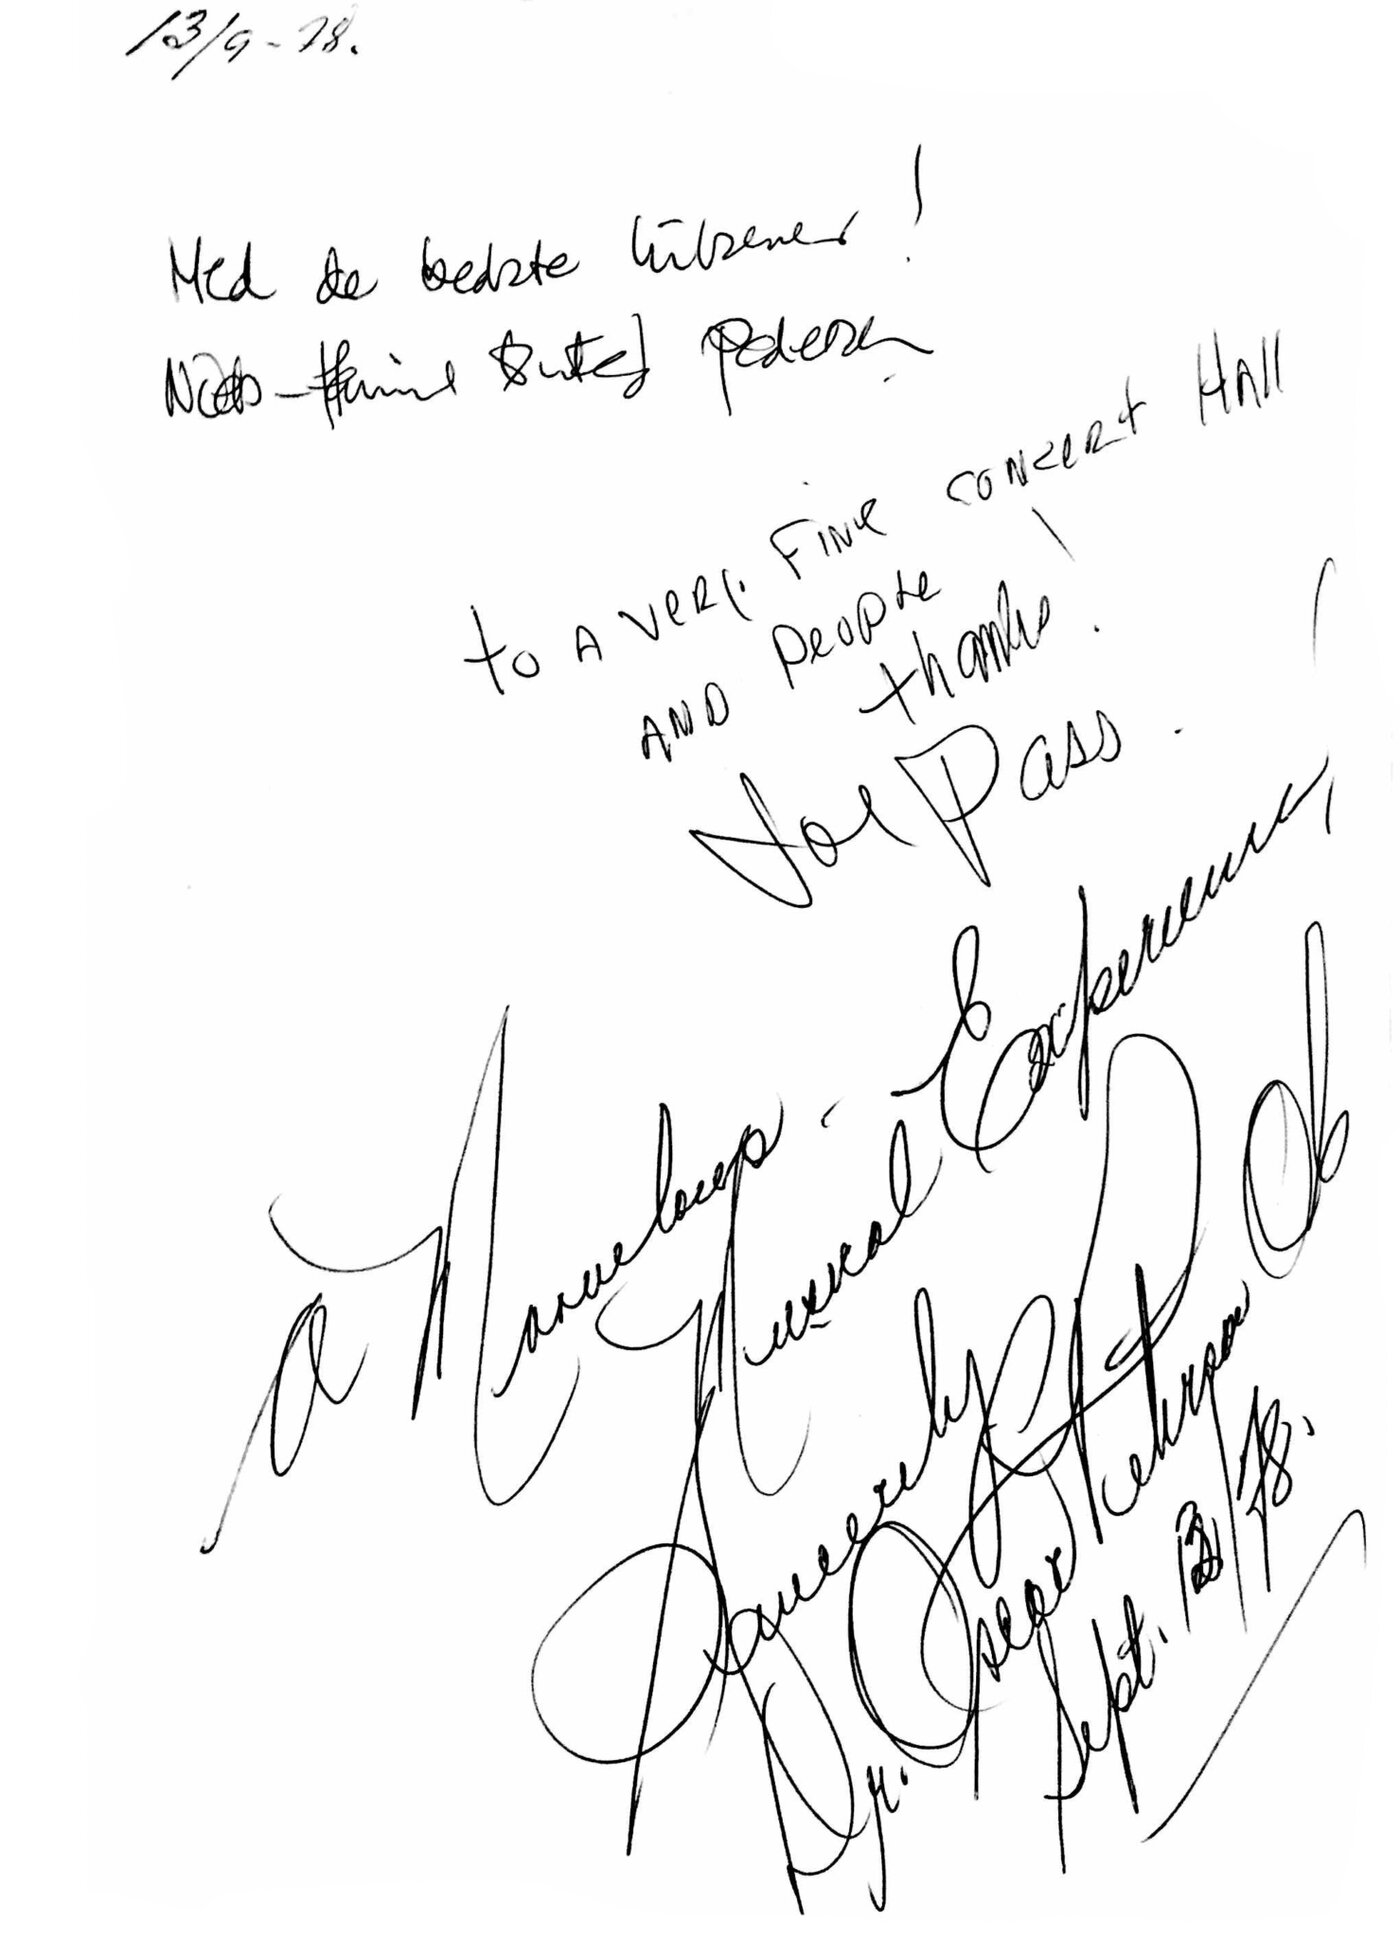 13/9-78.
Med de bedste hilsener!
Niels-Henning Ørsted Pedersen
to A very FINE CONCERT HAll
AND People
thanks!
Joe Pass.
A Marvelous
Musical Experience,
Sincerely
Dr. Oscar Peterson
Sept. 13/78.